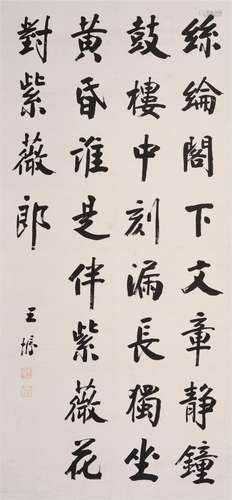 絲綸閣下文章靜鐘
鼓樓中刻漏長獨坐
黃昏誰是伴紫薇花
對紫薇郎
王